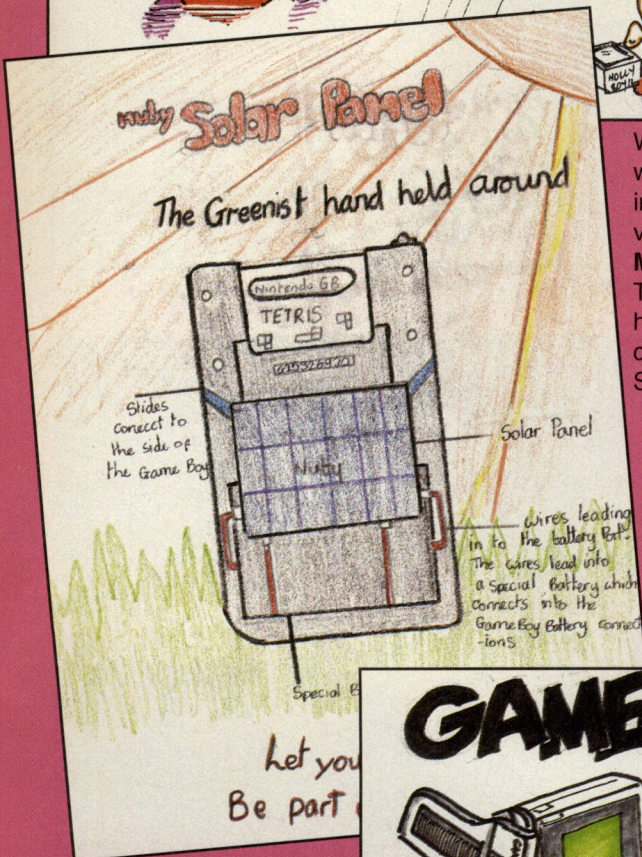 Nuby Solar Panel
The Greenist hand held around
Nintendo GB
TETRIS
Slides
conecct to
the side of
the Game Boy
Nuby
Solar Panel
wires leading
in to the battery Port.
The wires lead into
a special Battery which
connects into the
GameBoy Battery connect
-ions
Special B
Let you
Be part
GAME
HOLLY
BOY